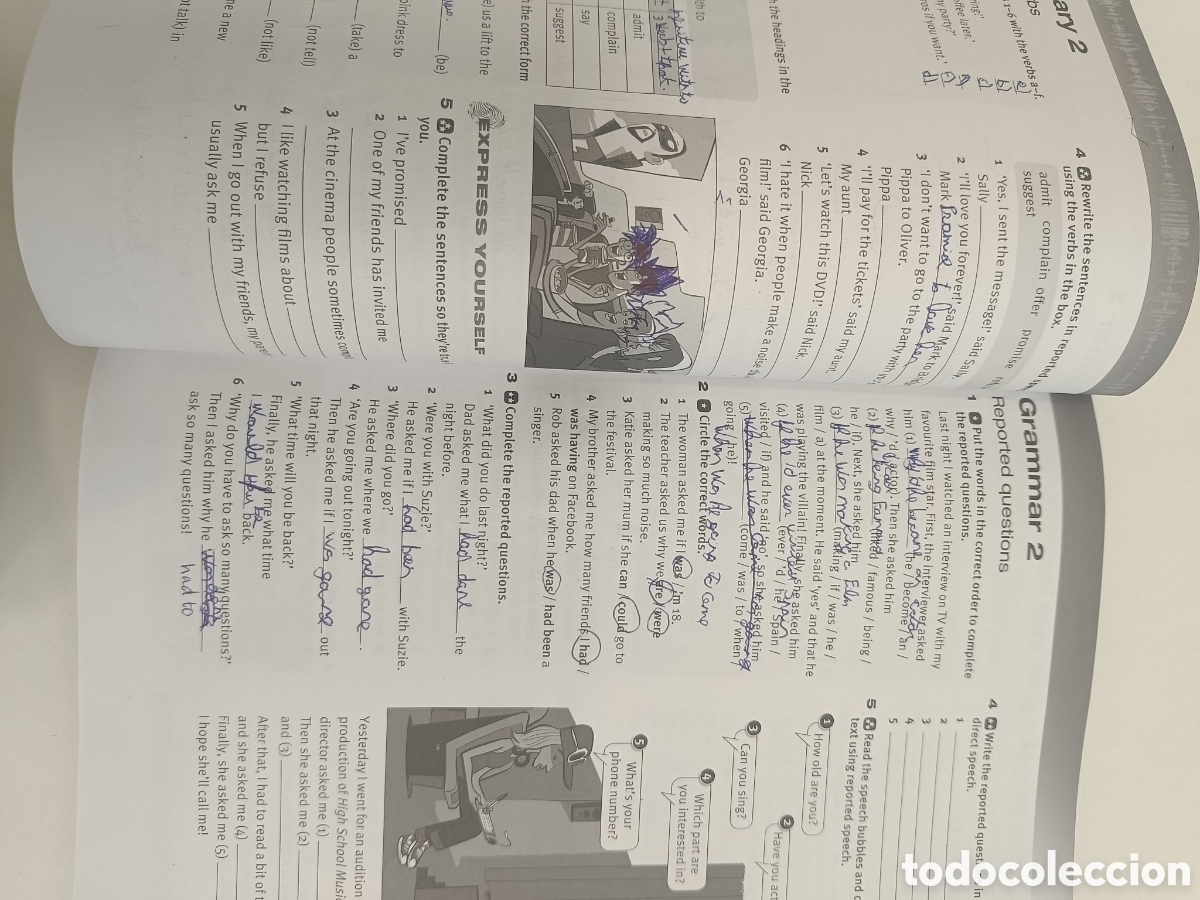 ary 2
bs
1–6 with the verbs a–f.
offee later.'
my party?'
ros if you want.'
h the headings in the
admit
complain
say
suggest
n the correct form
e) us a lift to the
(be)
pink dress to
(take) a
(not tell)
(not like)
me a new
ot talk) in
4 Rewrite the sentences in reported
using the verbs in the box.
admit complain offer promise
suggest
1 'Yes, I sent the message!' said Sally.
Sally
2 'I'll love you forever!' said Mark to
Mark
3 'I don't want to go to the party with
Pippa to Oliver.
Pippa
4 'I'll pay for the tickets' said my aunt.
My aunt
5 'Let's watch this DVD!' said Nick.
Nick
6 'I hate it when people make a noise
film!' said Georgia.
Georgia
EXPRESS YOURSELF
5 Complete the sentences so they're
you.
1 I've promised
2 One of my friends has invited me
3 At the cinema people sometimes
4 I like watching films about
but I refuse
5 When I go out with my friends, my
usually ask me
Grammar 2
Reported questions
1 Put the words in the correct order to complete
the reported questions.
Last night I watched an interview on TV with my
favourite film star. First, the interviewer asked
him (1) (he / become / an /
why / 'd / actor). Then she asked him
(2) / famous / being /
he / if). Next, she asked him
(3) If he was making film (making / if / was / he /
film / a) at the moment. He said 'yes' and that he
was playing the villain! Finally, she asked him
(4) If he 'd ever (ever / 'd / he / Spain /
visited / if) and he said 'no', so she asked him
(5) (come / was / to / when /
going / he)!
when was he going to come
2 Circle the correct words.
1 The woman asked me if I was / 'm 18.
2 The teacher asked us why we are / were
making so much noise.
3 Katie asked her mum if she can / could go to
the festival.
4 My brother asked me how many friends I had /
was having on Facebook.
5 Rob asked his dad when he was / had been a
singer.
3 Complete the reported questions.
1 'What did you do last night?'
Dad asked me what I had done the
night before.
2 'Were you with Suzie?'
He asked me if I had been with Suzie.
3 'Where did you go?'
He asked me where we had gone.
4 'Are you going out tonight?'
Then he asked me if I was going out
that night.
5 'What time will you be back?'
Finally, he asked me what time
I would be back.
6 'Why do you have to ask so many questions?'
Then I asked him why he had to
ask so many questions!
4 Write the reported quest in
direct speech.
1
2
3
4
5
5 Read the speech bubbles and c
text using reported speech.
1 How old are you?
2 Have you act
3 Can you sing?
4 Which part are
you interested in?
5 What's your
phone number?
Yesterday I went for an audition
production of High School Music
director asked me (1)
Then she asked me (2)
and (3)
After that, I had to read a bit of t
and she asked me (4)
Finally, she asked me (5)
I hope she'll call me!
todocoleccion